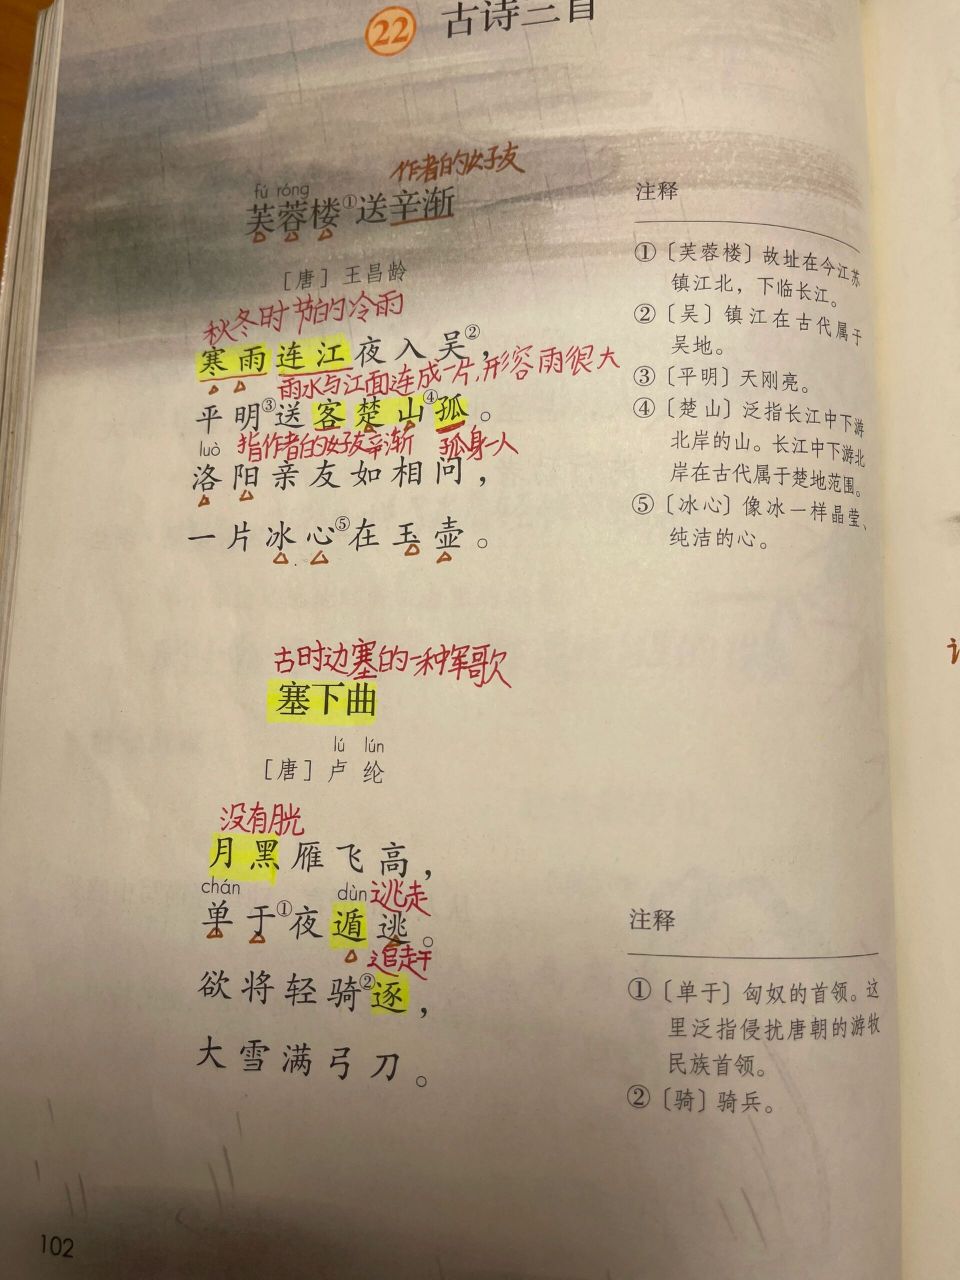 22 古诗三首
作者的好友
fú róng
芙蓉楼①送辛渐
[唐] 王昌龄
秋冬时节的冷雨
寒雨连江夜入吴②，
雨水与江面连成一片，形容雨很大
平明③送客楚山④孤。
luò 指作者的好友辛渐 孤身一人
洛阳亲友如相问，
一片冰心⑤在玉壶。
注释
①〔芙蓉楼〕故址在今江苏
镇江北，下临长江。
②〔吴〕镇江在古代属于
吴地。
③〔平明〕天刚亮。
④〔楚山〕泛指长江中下游
北岸的山。长江中下游北
岸在古代属于楚地范围。
⑤〔冰心〕像冰一样晶莹、
纯洁的心。
古时边塞的一种军歌
塞下曲
lú lún
[唐] 卢纶
没有月光
月黑雁飞高，
chán dùn 逃走
单于①夜遁逃。
追赶
欲将轻骑②逐，
大雪满弓刀。
注释
①〔单于〕匈奴的首领。这
里泛指侵扰唐朝的游牧
民族首领。
②〔骑〕骑兵。
102